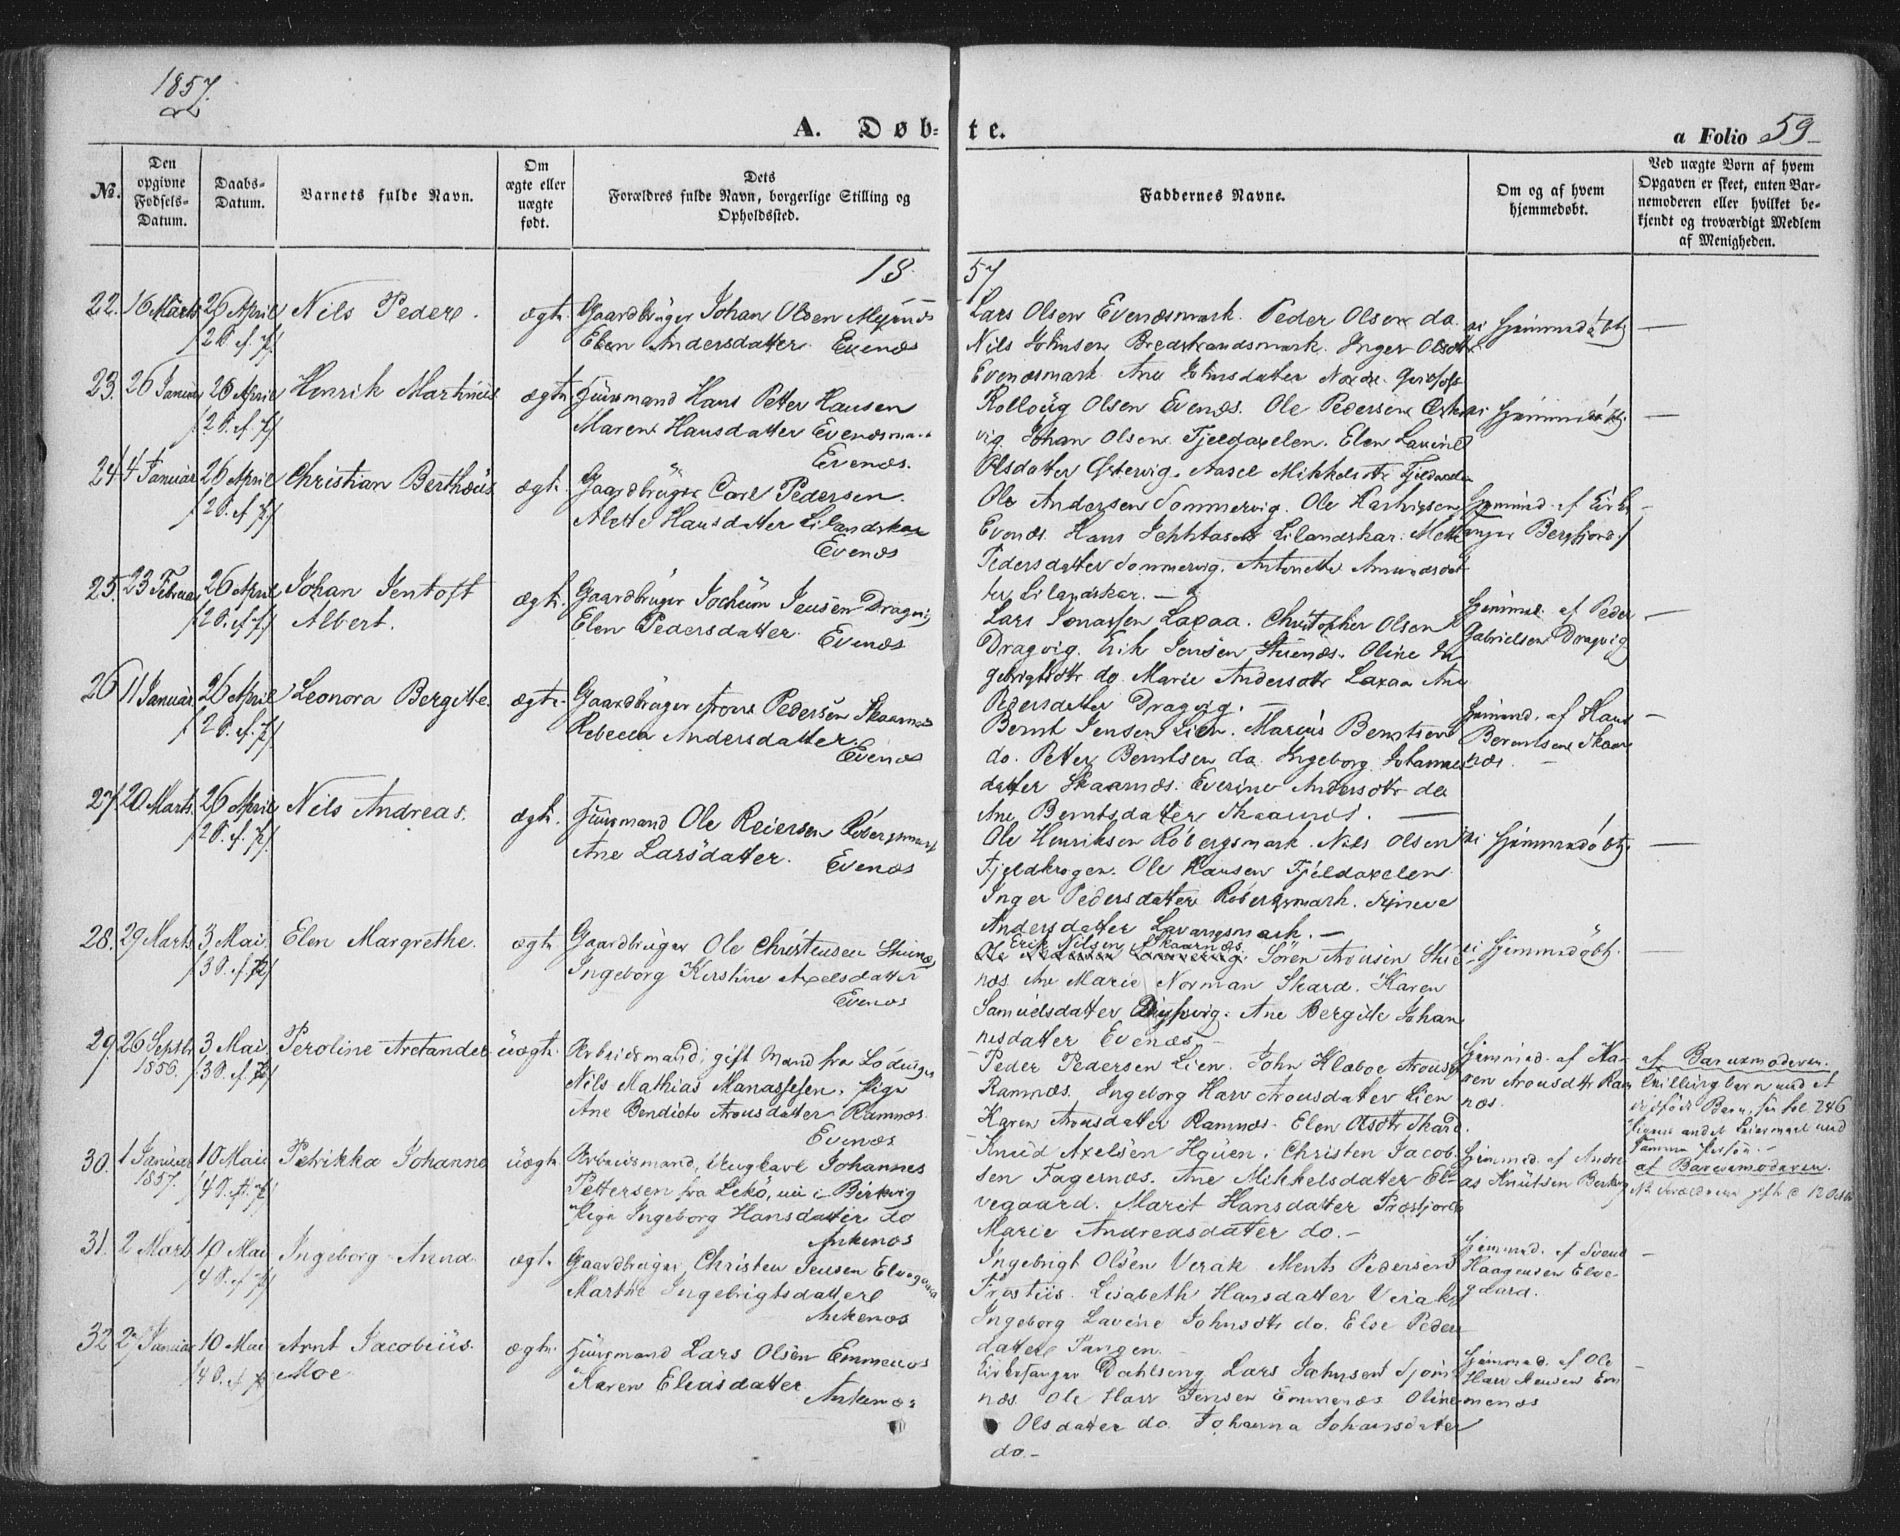 1857.
A. Døb-
te.
a Folio 59
№.
Den opgivne Fødsels-Datum.
Daabs-Datum.
Barnets fulde Navn.
Om ægte eller uægte født.
Dets Forældres fulde Navn, borgerlige Stilling og Opholdssted.
Faddernes Navne.
Om og af hvem hjemmedøbt.
Ved uægte Børn af hvem Opgaven er skeet, enten Barnemoderen eller hvilket bekjendt og troværdigt Medlem af Menigheden.
18
57
22. 16 Marts 26 April Nils Peder. ægte. Gaardbruger Johan Olsen
/2 S. ef. P/ Elen Andersdatter. Evenæs
Lars Olsen Evenæsmark. Peder Olsen do.
Nils Johnsen Bredstrandsmark. Inger Olsdtr
Evenæsmark. Ane Johnsdatter
ei hjemmedøbt —
23. 26 Januar 26 April Henrik Martinus ægte Huusmand Hans Petter Hansen
/2 S. ef. P/ Maren Hansdatter Evenæsmark
Evenæs.
Olsen Evenæs. Ole Pedersen Oster
vig. Johan Olsen Fjeldaxelen. Elen Lavine
Olsdatter Ostervig. Aasel Mikkelsdtr Fjeldaxelen
ei hjemmedøbt —
24. 4 Januar 26 April Christian Berthæus ægte. Gaardbruger Carl Pedersen.
/2 S. ef. P/ Alette Hansdatter Lilandskar
Evenæs
Ole Andersen Sommervig. Ole
Evenæs. Hans Lilandskar. Mette
Pedersdatter Sommervig. Antonette Amundsdat
ter Lilandskar. —
Hjemmed. af Kirke
sanger Bergfjord. —
25. 23 Februar 26 April Johan Jentoft ægte. Gaardbruger Jochum Jensen Dragvig
/2 S. ef. P/ Albert. Elen Pedersdatter. Evenæs
Lars Jonassen Laxaa. Christopher Olsen
Dragvig. Erik Jensen Stuenæs. Oline In
gebrigtsdtr do. Marie Andersdtr Laxaa Ane
Pedersdatter Dragvig. —
Hjemmed. af Peder
Gabrielsen Dragvig —
26 11 Januar 26 April Leonora Bergitte. ægte. Gaardbruger Arone Pedersen Skaarnæs
/2 S. ef. P/ Rebecca Andersdatter.
Evenæs
Bernt Jensen Lien. Marius Berntsen
do. Petter Berntsen do. Ingeborg Johannes
datter Skaarnæs. Everine Andersdtr do
Ane Berntsdatter Skaarnæs. —
Hjemmed. af Hans
Berentsen Skaar
næs. —
27. 20 Marts. 26 April Nils Andreas. ægte. Huusmand Ole Reiersen Røbergsmark
/2 S. ef. P/ Ane Larsdatter. Evenæs
Ole Henriksen Röbergsmark. Nils Olsen
Fjeldkrogen. Ole Hansen Fjeldaxelen
Inger Pedersdatter Röbergsmark.
Andersdatter Lavangsmark. —
ei hjemmedøbt. —
28. 29 Marts 3 Mai. Elen Margrethe. ægte Gaardbruger Ole Christensen Stuenæs
/3 S. ef. P/ Ingeborg Kirstine Axelsdatter
Evenæs
Erik Nilsen Skaarnæs
Søren Aronsen Stue
næs. Ane Marie Norman Skard. Karen
Samuelsdatter Dyrvig. Ane Bergite Johan
nesdatter Evenæs. —
ei hjemmedøbt. —
29. 26 Septbr 3 Mai. Peroline Aretander uægte. Arbeidsmand, gift Mand fra Lødingen
1856. /3 S. ef. P/ Nils Mathias Manassesen. Pige
Ane Bendicte Aronsdatter Ramnæs.
Evenæs
Peder Pedersen Lien. John Klæboe Arons
Ramnæs. Ingeborg Harv Aronsdatter Lien
Karen Aronsdatter Ramnæs. Elen Olsdtr Skard.
Hjemmed. af Ka-
ren Aronsdtr Ram
næs.
af Barnemoderen.
Tvillingbarn med et
dødfødt Barn, see fol. 246
samme Person. —
30. 1 Januar 10 Mai Petrikka Johanne uægte. Arbeidsmand, Ungkarl Johannes
1857. /4 S. ef. P/ Pettersen fra Lekö, nu i Birkvig
Pige Ingeborg Hansdatter do
Ankenæs
Knud Axelsen Christen Jacob
sen Fagernæs. Ane Mikkelsdatter El-
vegaard. Marit Hansdatter
Marie Andreasdatter do. —
Hjemmed. af Andre
as Knutsen
af Barnemoderen.
31. 2 Marts 10 Mai Ingeborg Anna. ægte. Gaardbruger, Christen Jensen Elvegaard
/4 S. ef. P/ Marthe Ingebrigtsdatter
Ankenæs
Ingebrigt Olsen Virak. Ments Pedersen
Lisabeth Hansdatter Virak
Ingeborg Lavine Johnsdtr do. Else Peders
datter Tangen. —
Hjemmed. af Svend
Haagensen Elve-
gaard. —
32. 27 Januar 10 Mai Arnt Jacobius ægte. Huusmand Lars Olsen Emmenæs
/4 S. ef. P/ Moe Karen Eliasdatter
Ankenæs
Kirkesanger Dahlseng. Lars Johnsen
næs. Ole Harr Jensen Emmenæs. Oline
Olsdatter do. Johanna Johansdatter
do. —
Hjemmed. af Ole
Harr Jensen Em
menæs —